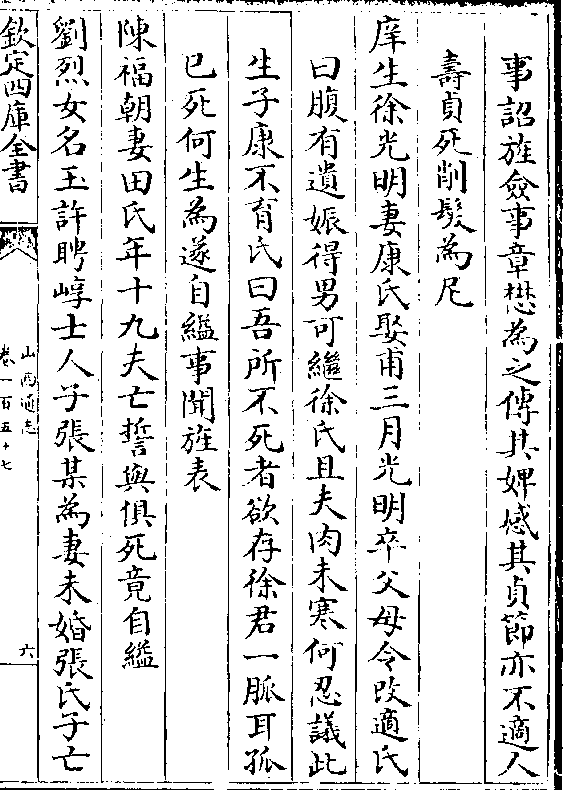 事詔旌僉事章懋為之傳其婢感其貞節亦不適人
壽貞死削髮為尼
庠生徐光明妻康氏娶甫三月光明卒父母令改適氏
曰腹有遺娠得男可繼徐氏且夫肉未寒何忍議此
生子康不育氏曰吾所不死者欲存徐君一脈耳孤
已死何生為遂自縊事聞旌表
陳福朝妻田氏年十九夫亡誓與俱死竟自縊
劉烈女名玉許聘崞士人子張某為妻未婚張氏子亡
欽定四庫全書
山西通志
卷一百五十七
六